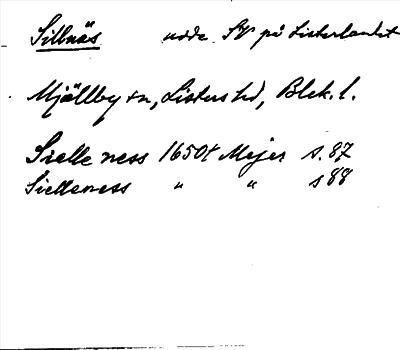 Sillnäs udde SV på Listerlandet
Mjällby sn, Listers hd, Blek. l.
Sielle ness 1650t Mejer s. 87
Sielleness " " s 88